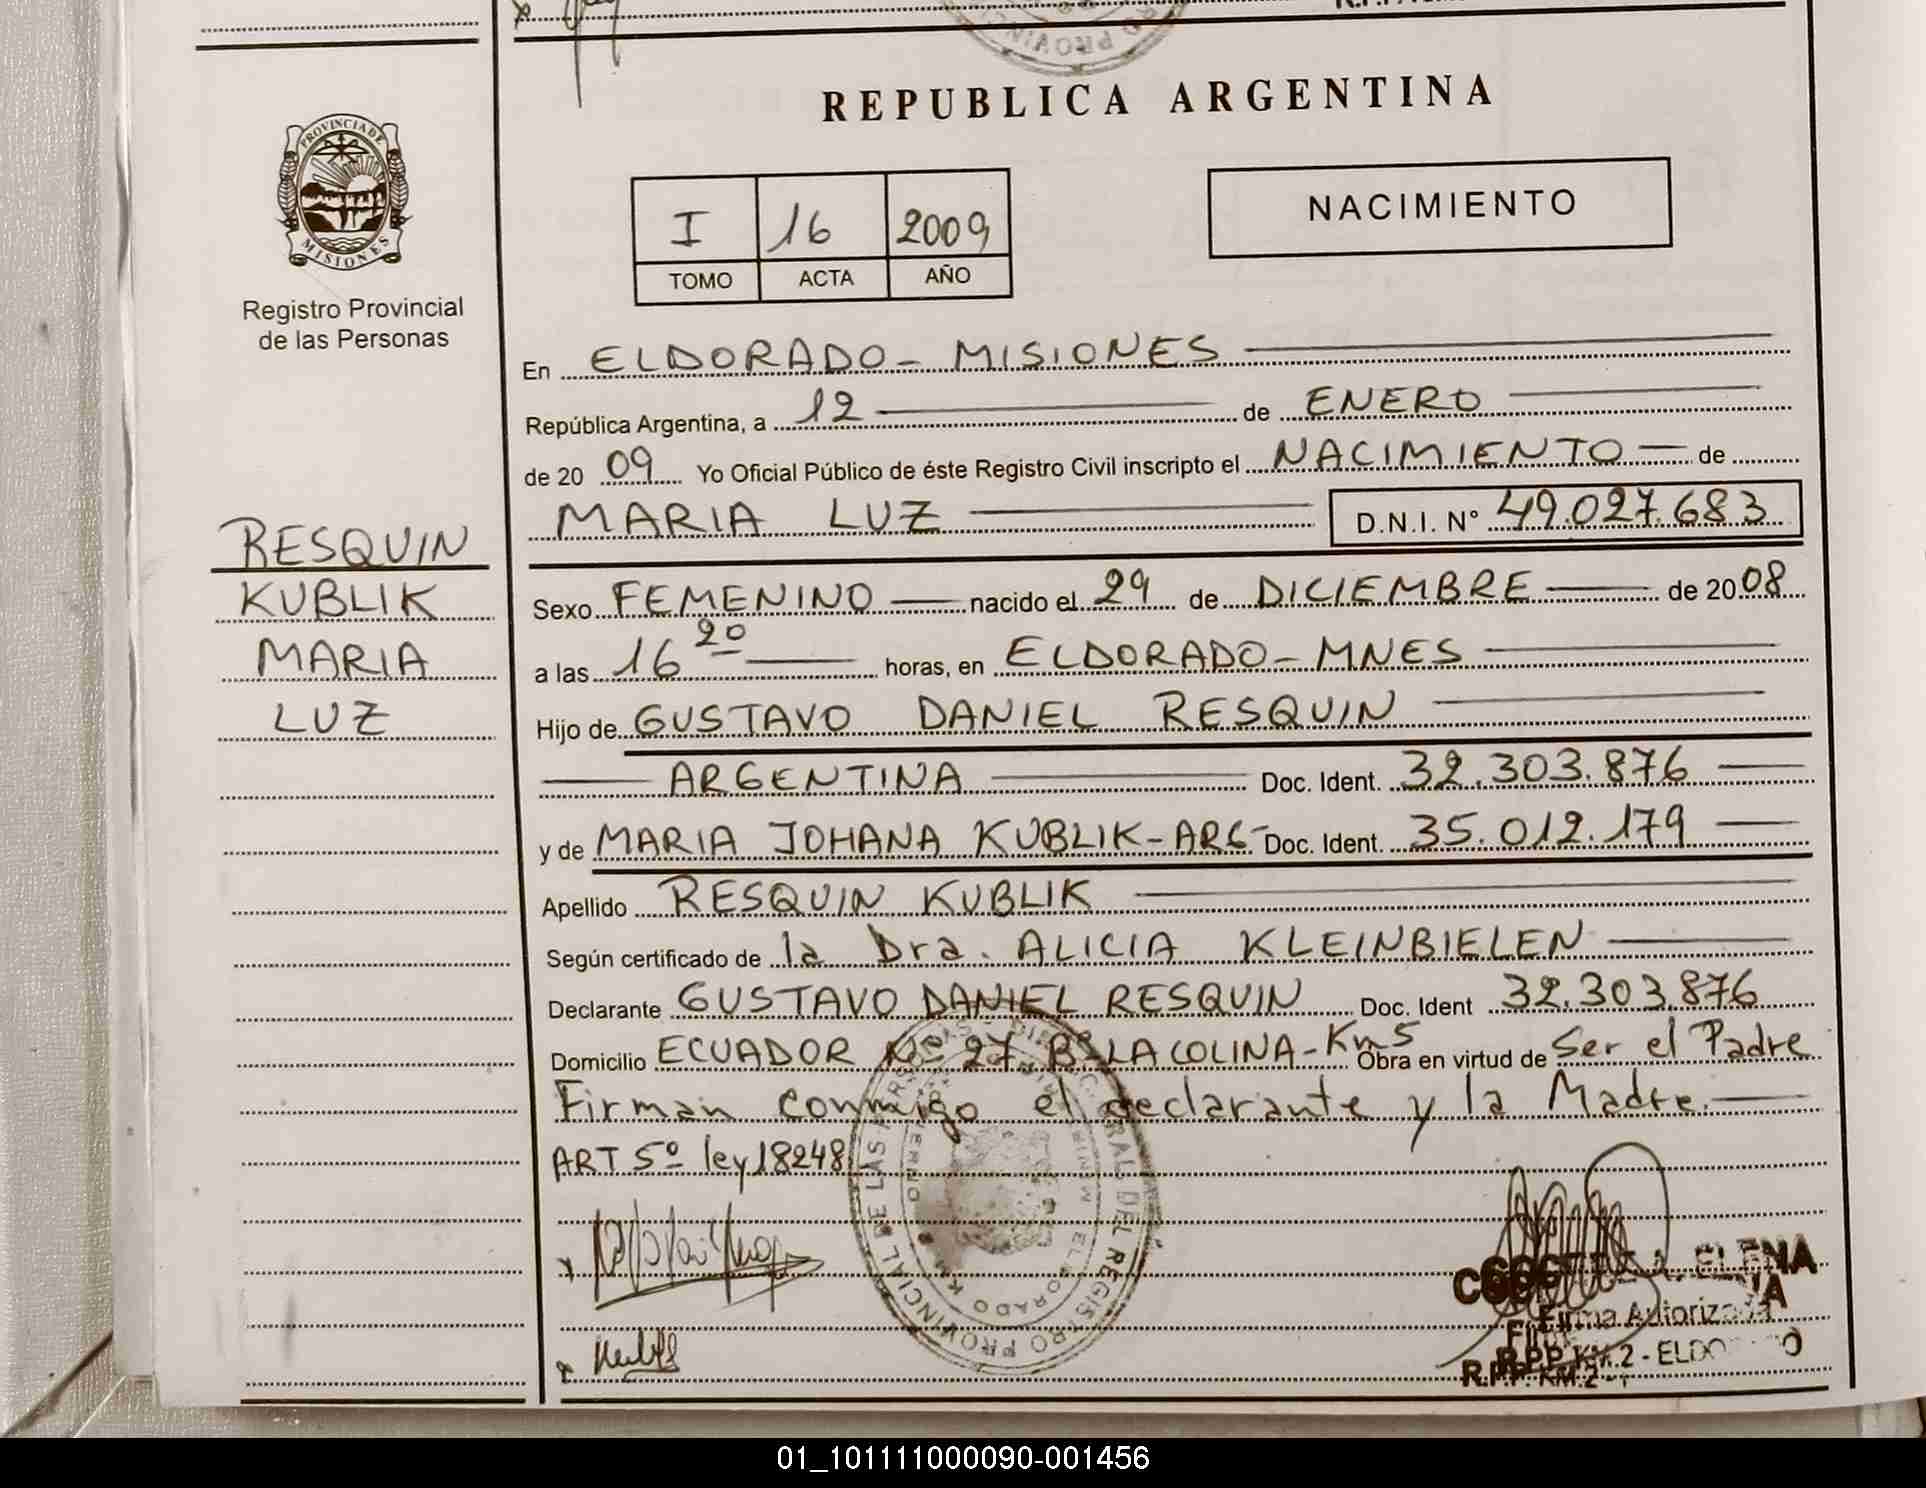 REPUBLICA ARGENTINA
PROVINCIA DE
MISIONES
Registro Provincial
de las Personas
I 16 2009
TOMO ACTA AÑO
NACIMIENTO
En ELDORADO - MISIONES
República Argentina, a 12 de ENERO
de 20 09 Yo Oficial Público de éste Registro Civil inscripto el NACIMIENTO de
MARIA LUZ D.N.I. N° 49.027.683
RESQUIN
KUBLIK
MARIA
LUZ
Sexo FEMENINO nacido el 29 de DICIEMBRE de 20 08
a las 16 20 horas, en ELDORADO - MNES
Hijo de GUSTAVO DANIEL RESQUIN
ARGENTINA Doc. Ident. 32.303.876
y de MARIA JOHANA KUBLIK - ARG - Doc. Ident. 35.012.179
Apellido RESQUIN KUBLIK
Según certificado de la Dra. ALICIA KLEINBIELEN
Declarante GUSTAVO DANIEL RESQUIN Doc. Ident 32.303.876
Domicilio ECUADOR Nº 27 Bº LA COLINA - Km 5 Obra en virtud de Ser el Padre
Firman conmigo el declarante y la Madre.
ART 5º ley 18248
REGISTRO PROVINCIAL DE LAS PERSONAS
ELDORADO KM
ELENA
Firma Autorizada
R.P.P. KM.2 - ELDO
R.P.P. KM.2 -
01_101111000090-001456